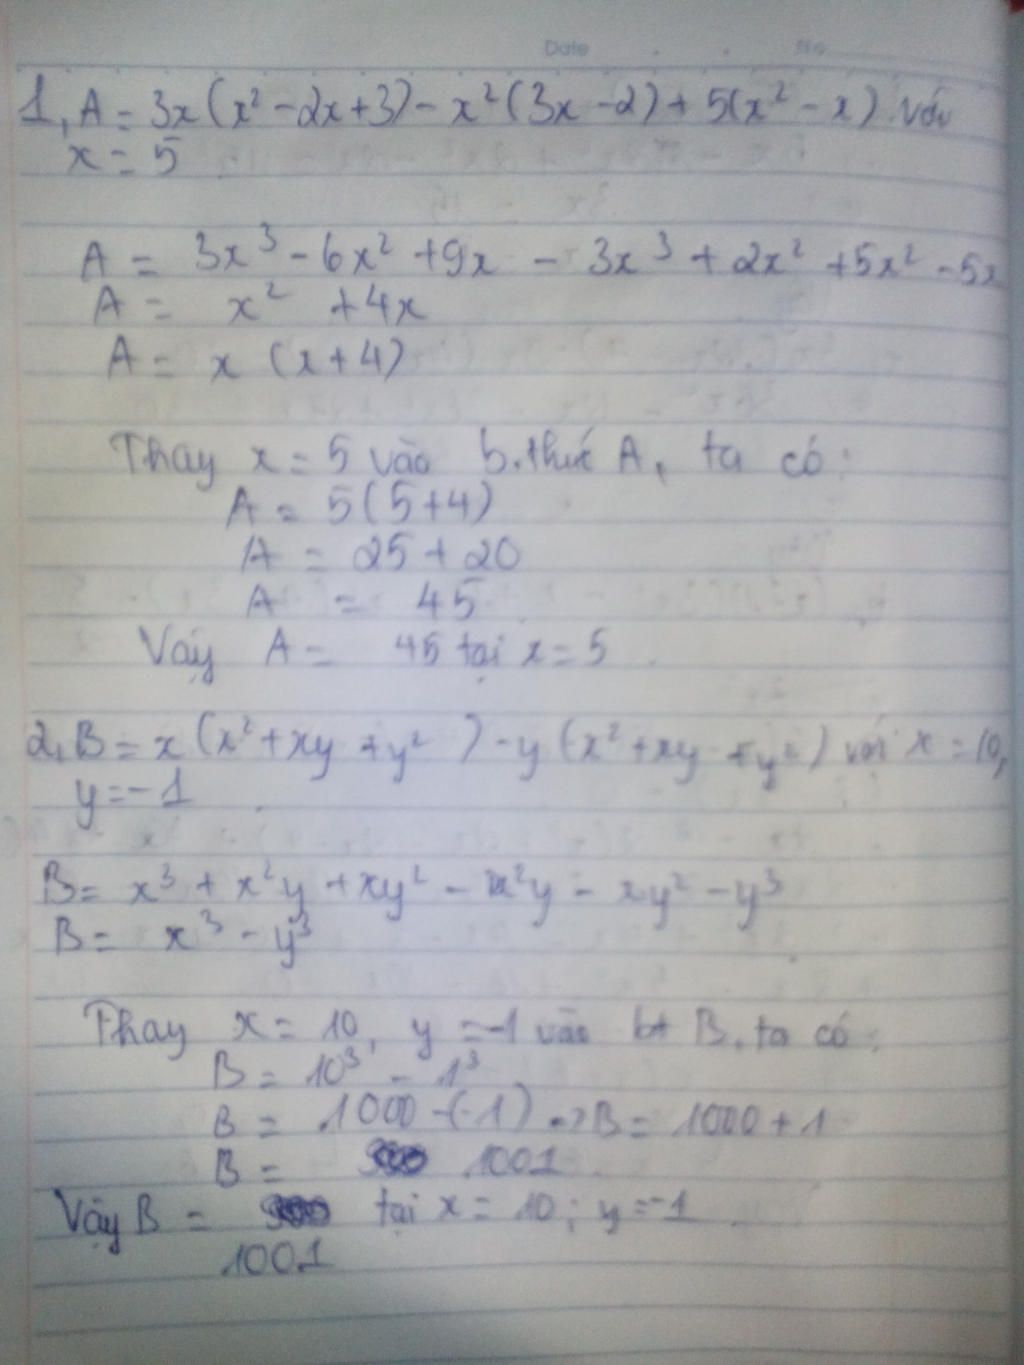 Date No
1, A = 3x(x² - 2x + 3) - x²(3x - 2) + 5(x² - x) với
x = 5
A = 3x³ - 6x² + 9x - 3x³ + 2x² + 5x² - 5x
A = x² + 4x
A = x (x + 4)
Thay x = 5 vào b.thức A, ta có:
A = 5(5+4)
A = 25 + 20
A = 45
Vậy A = 45 tại x = 5
2, B = x(x² + xy + y²) - y(x² + xy + y²) với x = 10,
y = -1
B = x³ + x²y + xy² - x²y - xy² - y³
B = x³ - y³
Thay x = 10, y = -1 vào bt B, ta có:
B = 10³ - 1³
B = 1000 - (-1) => B = 1000 + 1
B = 1001
Vậy B = tại x = 10; y = -1
1001